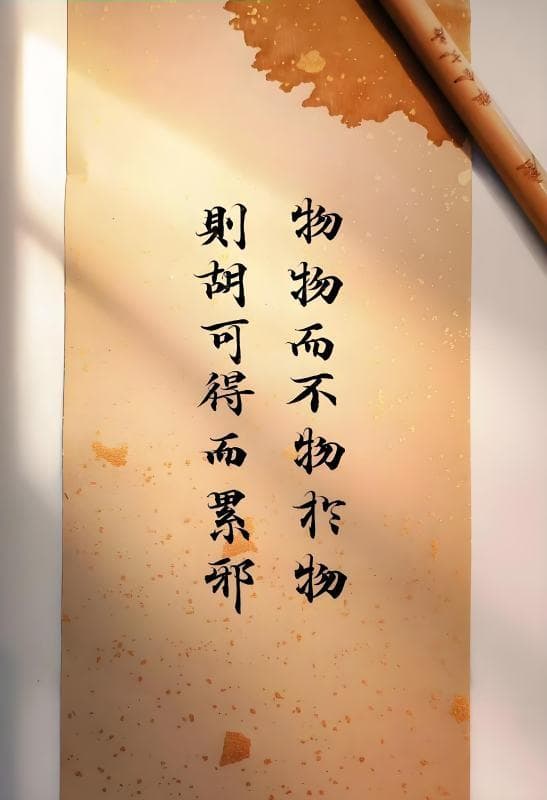 物物而不物於物
則胡可得而累邪